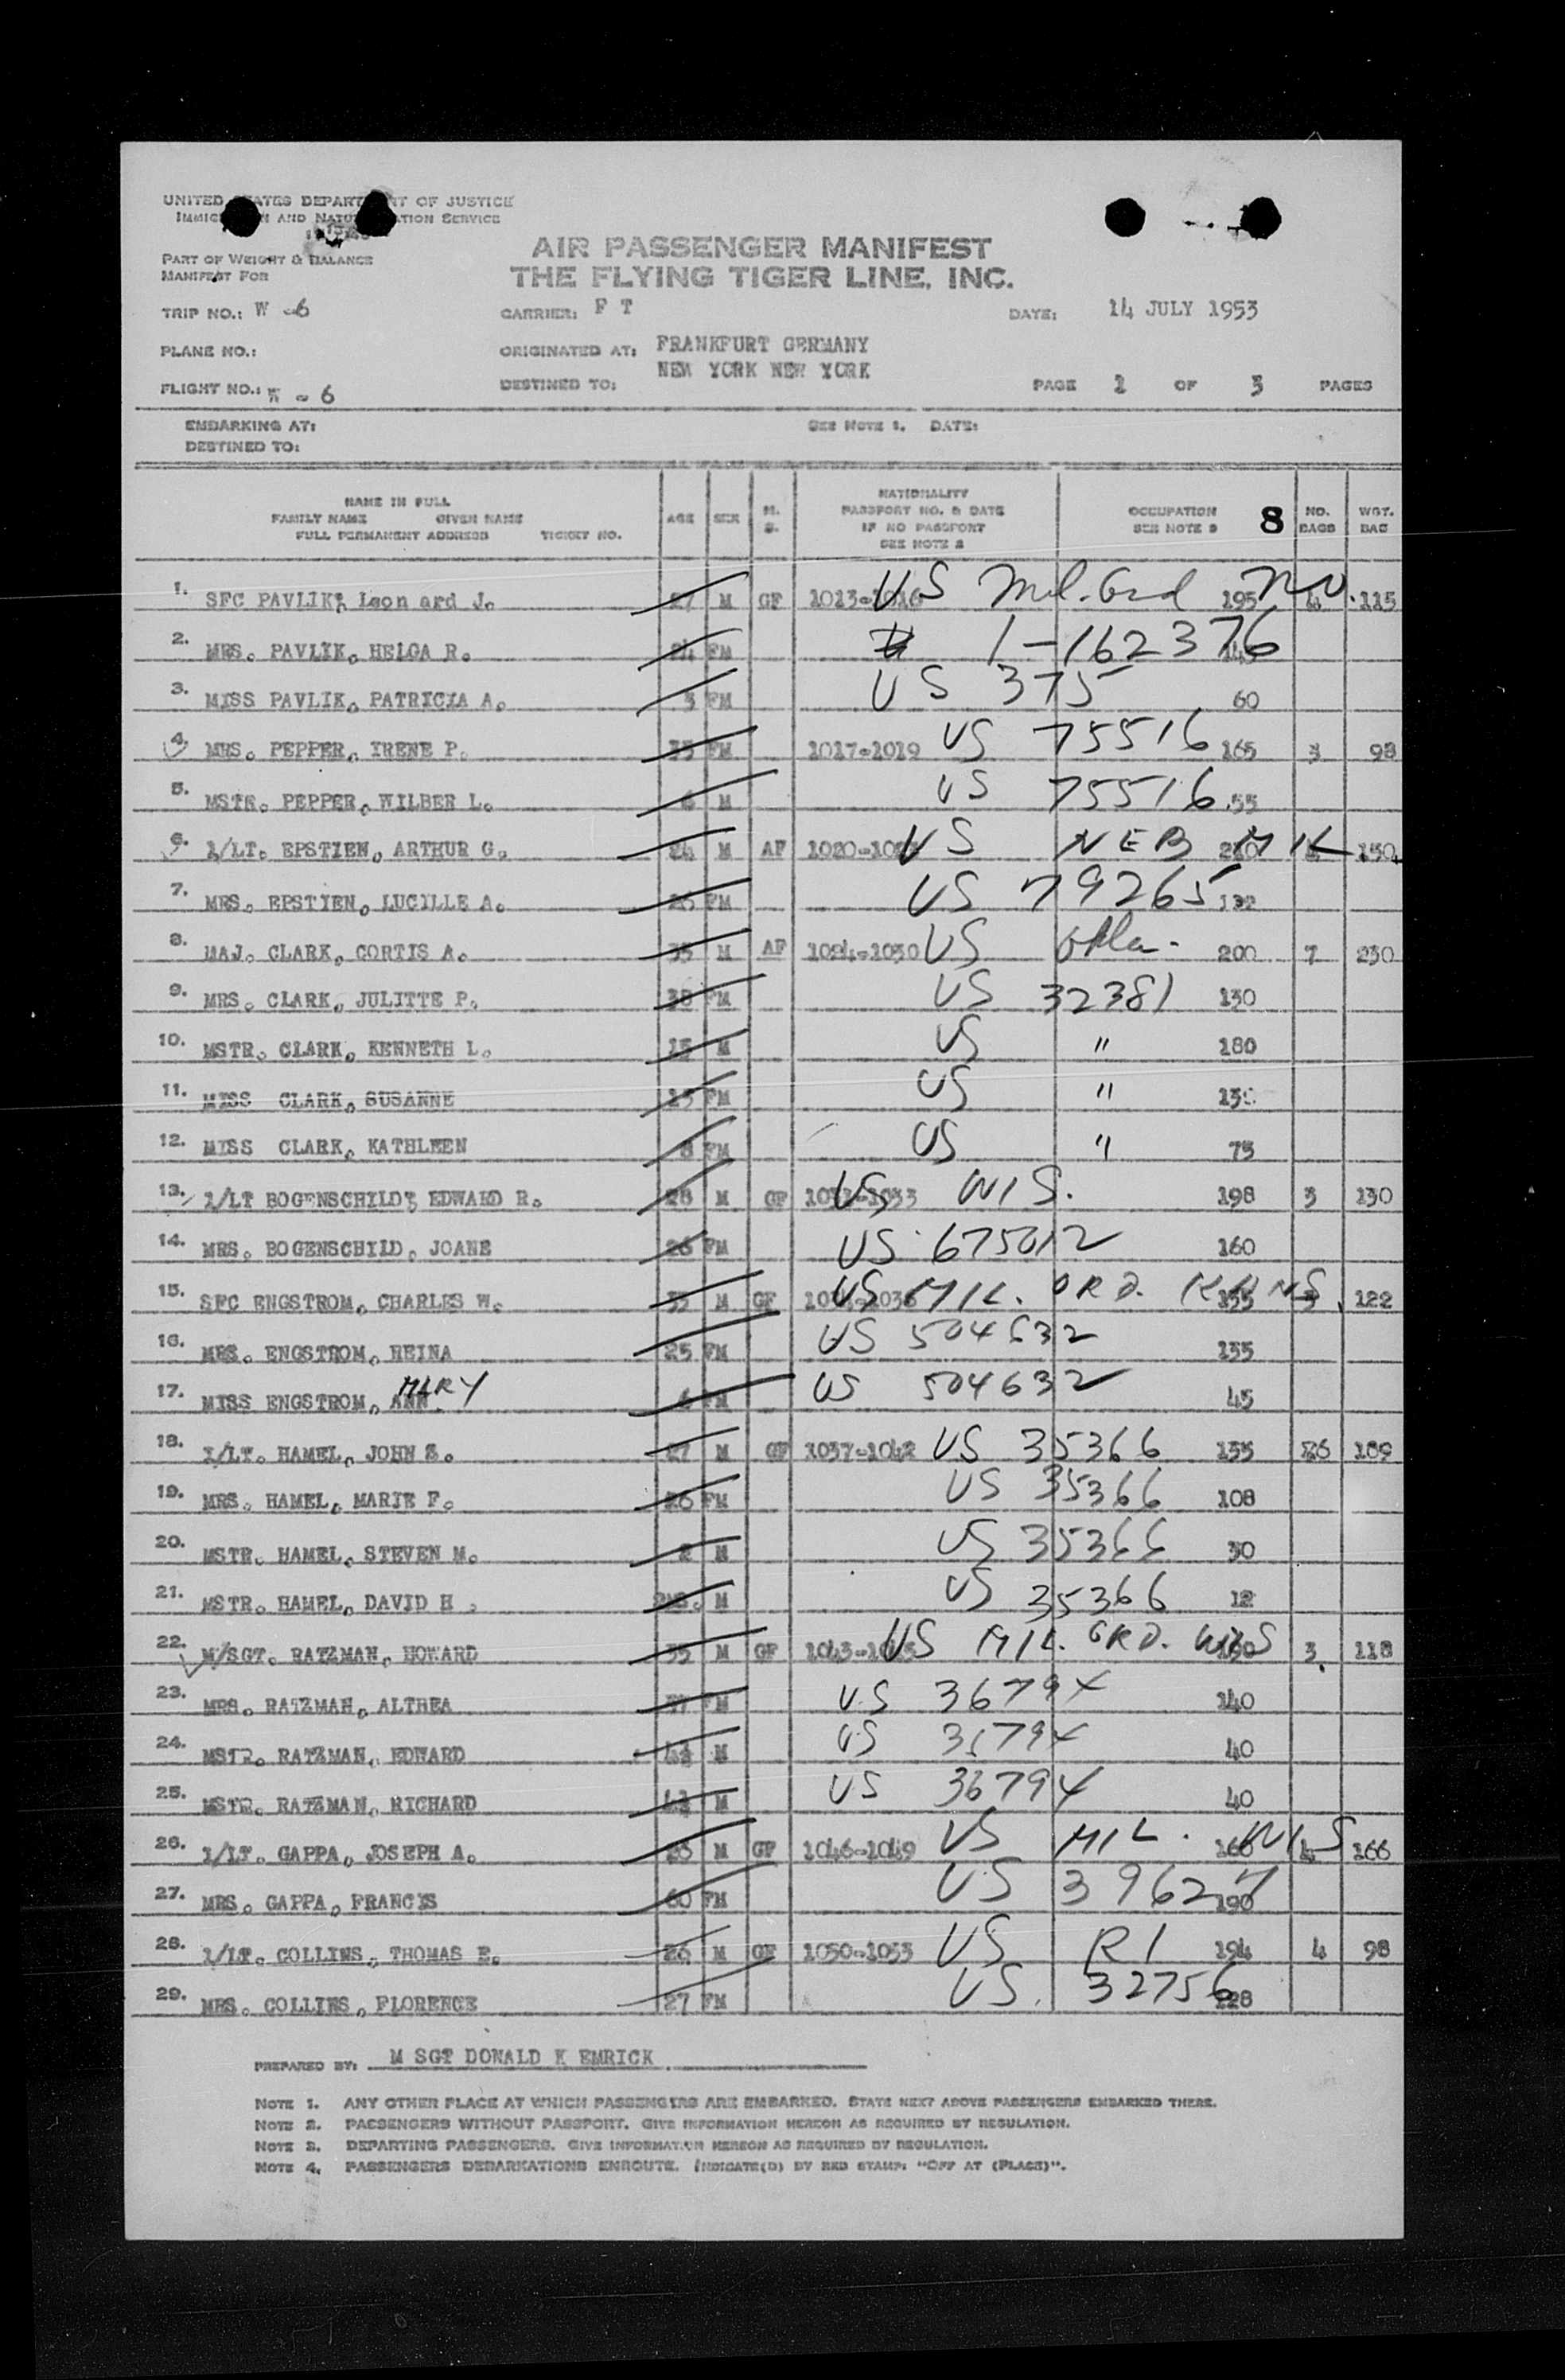 UNITED STATES DEPARTMENT OF JUSTICE
IMMIGRATION AND NATURALIZATION SERVICE
PART OF WEIGHT & BALANCE
MANIFEST FOR
AIR PASSENGER MANIFEST
THE FLYING TIGER LINE, INC.
TRIP NO.: W -6 CARRIER: F T DATE: 14 JULY 1953
PLANE NO.: ORIGINATED AT: FRANKFURT GERMANY
FLIGHT NO.: W - 6 DESTINED TO: NEW YORK NEW YORK PAGE OF 3 PAGES
EMBARKING AT: SEE NOTE 1. DATE:
DESTINED TO:
NAME IN FULL
FAMILY NAME GIVEN NAME
FULL PERMANENT ADDRESS TICKET NO.
AGE SEX M. S.
NATIONALITY
PASSPORT NO. & DATE
IF NO PASSPORT
SEE NOTE 2
OCCUPATION
SEE NOTE 3 8
NO. BAGS
WGT. BAG
1. SFC PAVLIK, Leon ard J. 27 M GF 1013-1016 US Mil. Ord 195 4 115
2. MRS. PAVLIK, HELGA R. 24 FM 1-162376
3. MISS PAVLIK, PATRICIA A. 3 FM US 375 60
4. MRS. PEPPER, IRENE P. FM 1017-1019 US 75516 165 3 98
5. MSTR. PEPPER, WILBER L. 6 M US 75516 55
6. 1/LT. EPSTIEN, ARTHUR G. M AF US NEB 150
7. MRS. EPSTIEN, LUCILLE A. 26 FM US 79265 132
8. MAJ. CLARK, CORTIS A. 35 M AF 1024-1030 US Okla. 200 7 230
9. MRS. CLARK, JULITTE P. 38 FM US 32381 130
10. MSTR. CLARK, KENNETH L. 15 M US " 180
11. MISS CLARK, SUSANNE 13 FM US " 130
12. MISS CLARK, KATHLEEN 8 FM US " 75
13. 1/LT BOGENSCHILD, EDWARD R. 28 M GF 1031-1033 US WIS. 198 3 130
14. MRS. BOGENSCHILD, JOANE 26 FM US 675012 160
15. SFC ENGSTROM, CHARLES W. M GF US MIL. ORD. KANS 3 122
16. MRS. ENGSTROM, HEINA 25 FM US 504632 135
17. MISS ENGSTROM, ANN MARY FM US 504632 45
18. 1/LT. HAMEL, JOHN Z. 27 M GF 1037-1042 US 35366 155 6 189
19. MRS. HAMEL, MARIE F. 26 FM US 35366 108
20. MSTR. HAMEL, STEVEN M. 2 M US 35366 30
21. MSTR. HAMEL, DAVID H . M US 35366 12
22. M/SGT. RATZMAN, HOWARD 35 M GF 1043-1045 US MIL. ORD. WIS 3 118
23. MRS. RATZMAN, ALTHEA FM US 36794 140
24. MSTR. RATZMAN, EDWARD M US 36794 40
25. MSTR. RATZMAN, RICHARD M US 36794 40
26. 1/LT. GAPPA, JOSEPH A. M GF 1046-1049 US MIL. WIS 4 166
27. MRS. GAPPA, FRANCIS 60 FM US 39627 190
28. 1/LT. COLLINS, THOMAS E. 26 M GF 1050-1053 US RI 194 4 98
29. MRS. COLLINS, FLORENCE 27 FM US 32756 128
PREPARED BY: M SGT DONALD K EMRICK
NOTE 1. ANY OTHER PLACE AT WHICH PASSENGERS ARE EMBARKED. STATE NEXT ABOVE PASSENGERS EMBARKED THERE.
NOTE 2. PASSENGERS WITHOUT PASSPORT. GIVE INFORMATION HEREON AS REQUIRED BY REGULATION.
NOTE 3. DEPARTING PASSENGERS. GIVE INFORMATION HEREON AS REQUIRED BY REGULATION.
NOTE 4. PASSENGERS DEBARKATIONS ENROUTE. INDICATE(D) BY RED STAMP: "OFF AT (PLACE)".